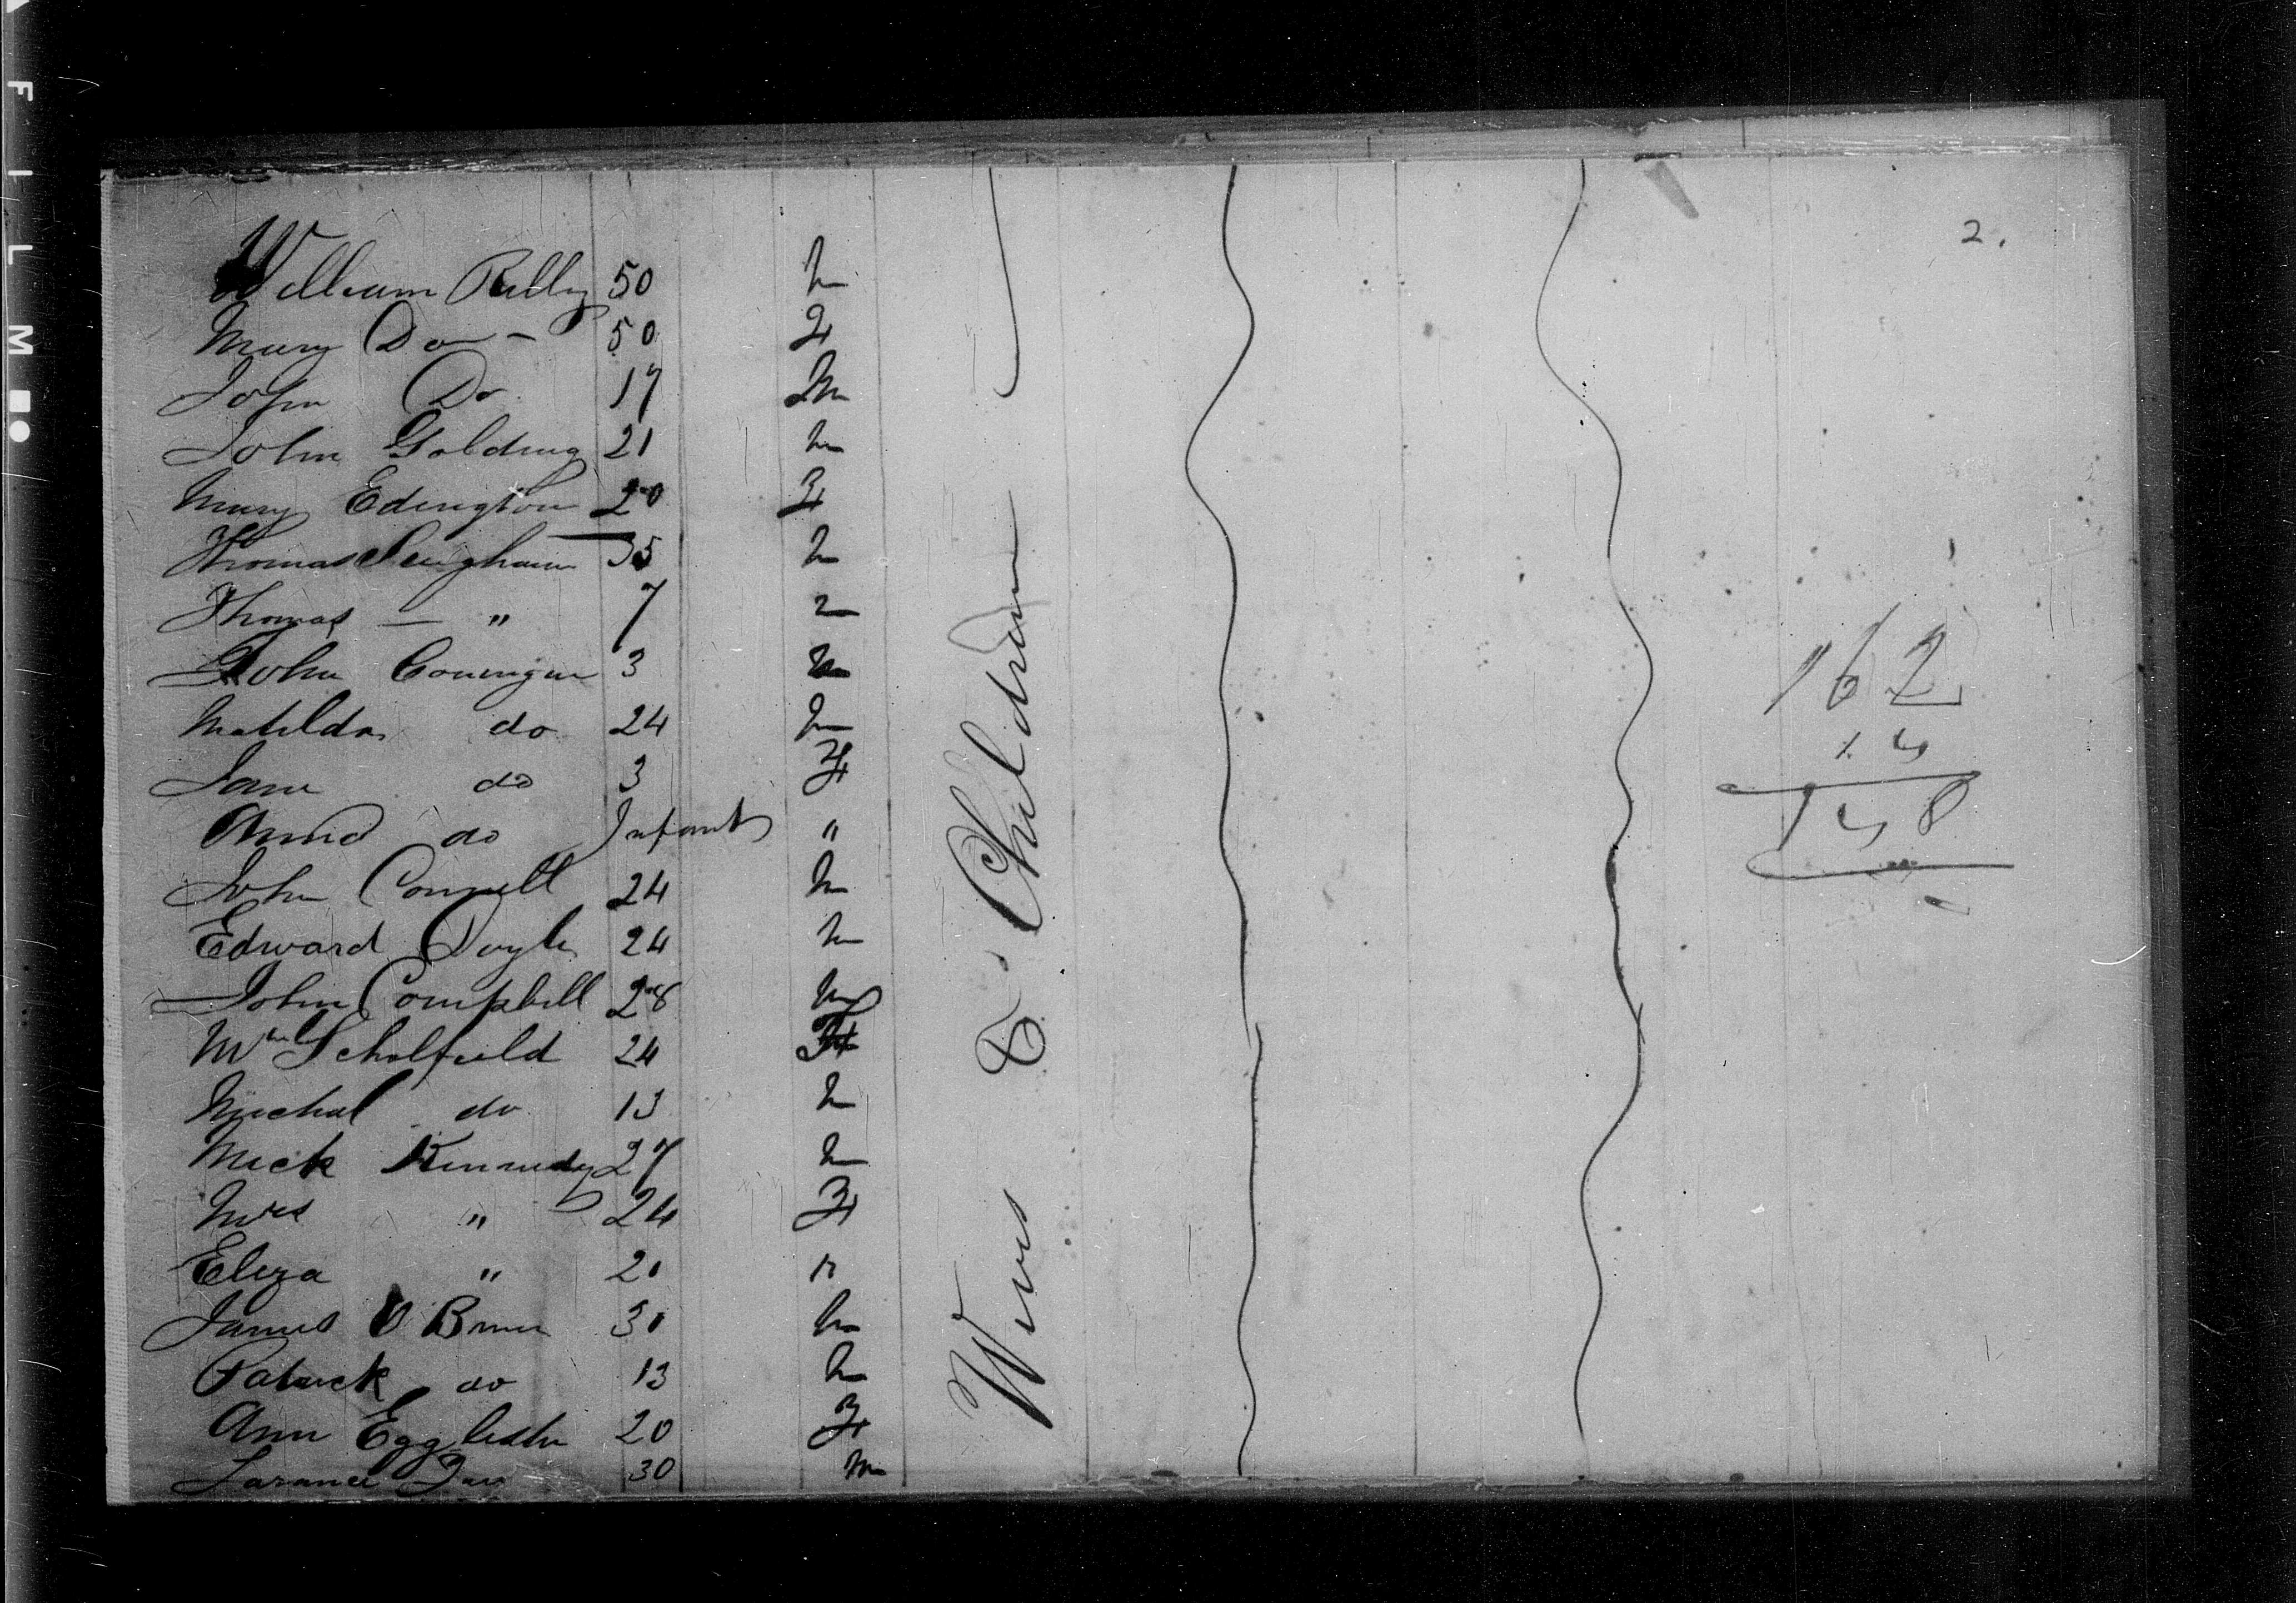 2.
William Rielly 50 M
Mary Do - 50 F
John Do 17 M
John Golding 21 M
Mary Edington 20 F
Thomas 35 M
Thomas — " 7 M
John 3 M
Matilda do 24 M
Jane do 3 F
Anna do Infant "
John Connell 24 M
Edward Doyle 24 M
John Campbell 28 M
Wm Scholfield 24
Michal do 13 M
Mick Kennedy 27 M
Mrs " 24 F
Eliza " 20 "
James O Brien 30 M
Patrick do 13 M
Ann Eggleston 20 F
Larance 30 M
Wives & Children
162
14
148
FILM